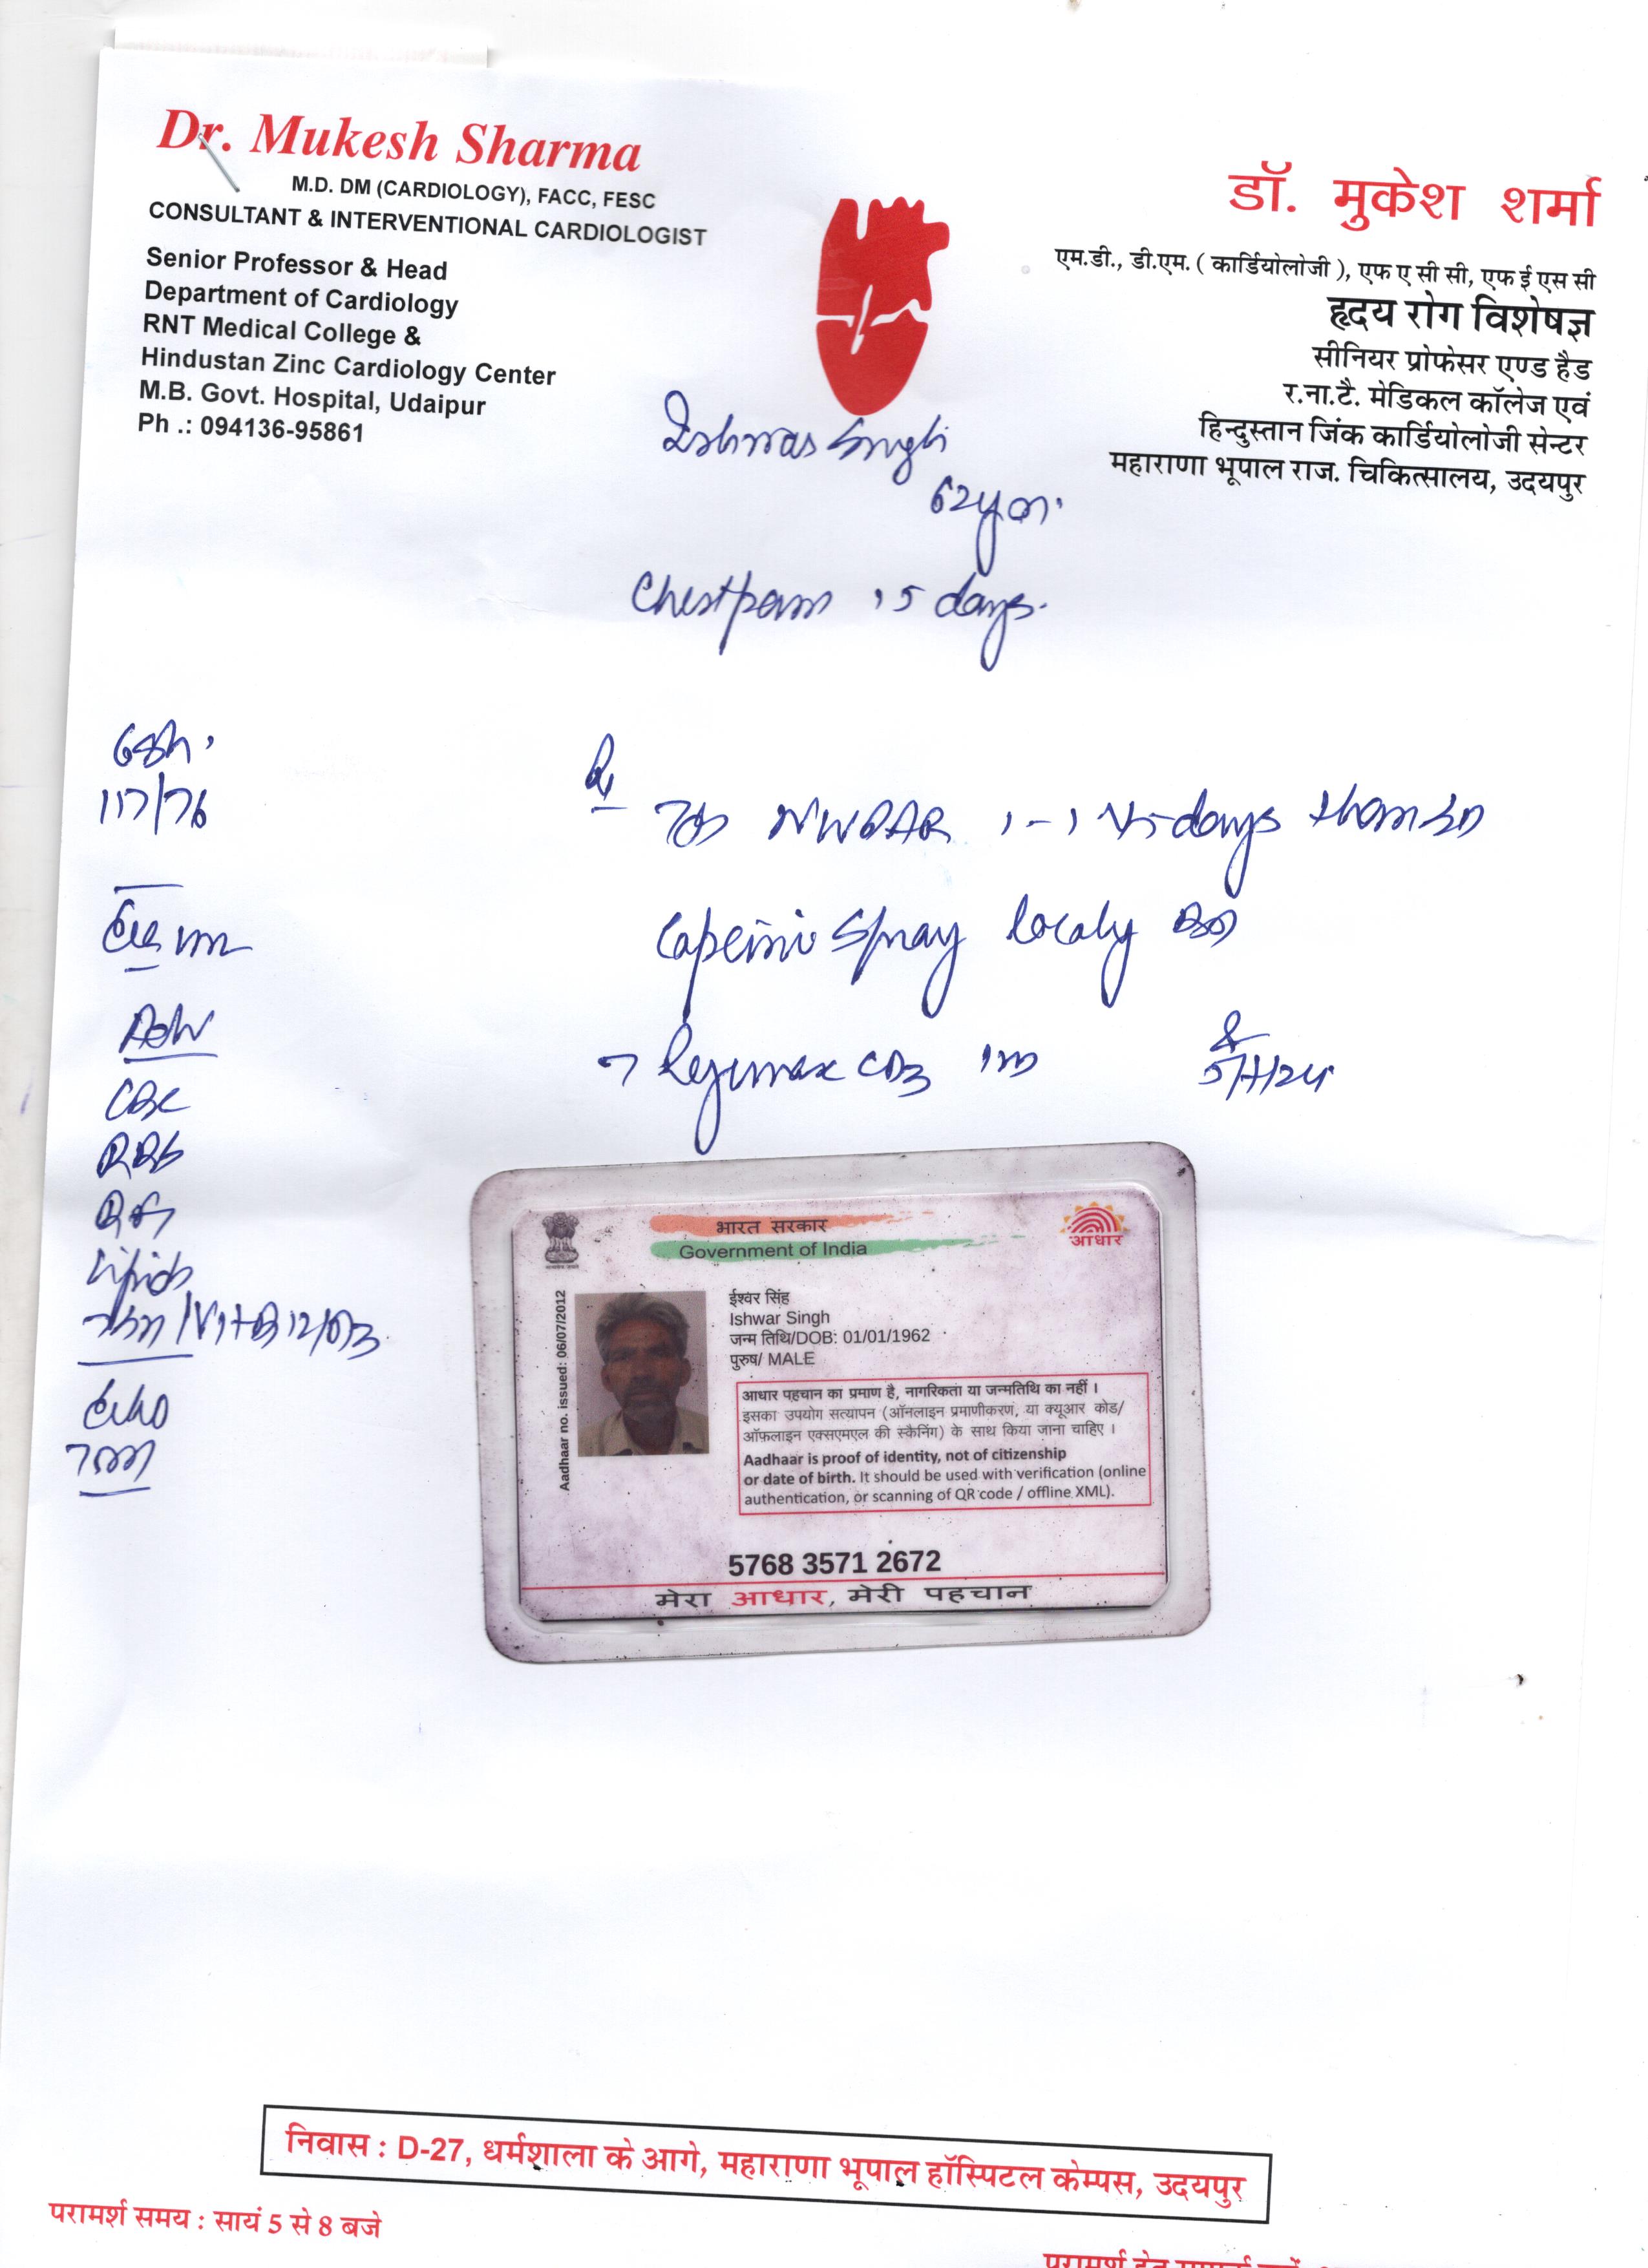 Dr. Mukesh Sharma
M.D. DM (CARDIOLOGY), FACC, FESC
CONSULTANT & INTERVENTIONAL CARDIOLOGIST
Senior Professor & Head
Department of Cardiology
RNT Medical College &
Hindustan Zinc Cardiology Center
M.B. Govt. Hospital, Udaipur
Ph .: 094136-95861
डॉ. मुकेश शर्मा
एम.डी., डी.एम. ( कार्डियोलोजी ), एफ ए सी सी, एफ ई एस सी
हृदय रोग विशेषज्ञ
सीनियर प्रोफेसर एण्ड हैड
र.ना.टै. मेडिकल कॉलेज एवं
हिन्दुस्तान जिंक कार्डियोलोजी सेन्टर
महाराणा भूपाल राज. चिकित्सालय, उदयपुर
Ishwar Singh
62y
Chestpain 5 days.
117/76
Rx
5 days
spray localy
5/7/24
CBC
RBS
Lipids
/Vit B12/D3
Echo
भारत सरकार
Government of India
आधार
Aadhaar no. issued: 06/07/2012
ईश्वर सिंह
Ishwar Singh
जन्म तिथि/DOB: 01/01/1962
पुरुष/ MALE
आधार पहचान का प्रमाण है, नागरिकता या जन्मतिथि का नहीं ।
इसका उपयोग सत्यापन (ऑनलाइन प्रमाणीकरण, या क्यूआर कोड/
ऑफ़लाइन एक्सएमएल की स्कैनिंग) के साथ किया जाना चाहिए ।
Aadhaar is proof of identity, not of citizenship
or date of birth. It should be used with verification (online
authentication, or scanning of QR code / offline XML).
5768 3571 2672
मेरा आधार, मेरी पहचान
निवास : D-27, धर्मशाला के आगे, महाराणा भूपाल हॉस्पिटल केम्पस, उदयपुर
परामर्श समय : सायं 5 से 8 बजे